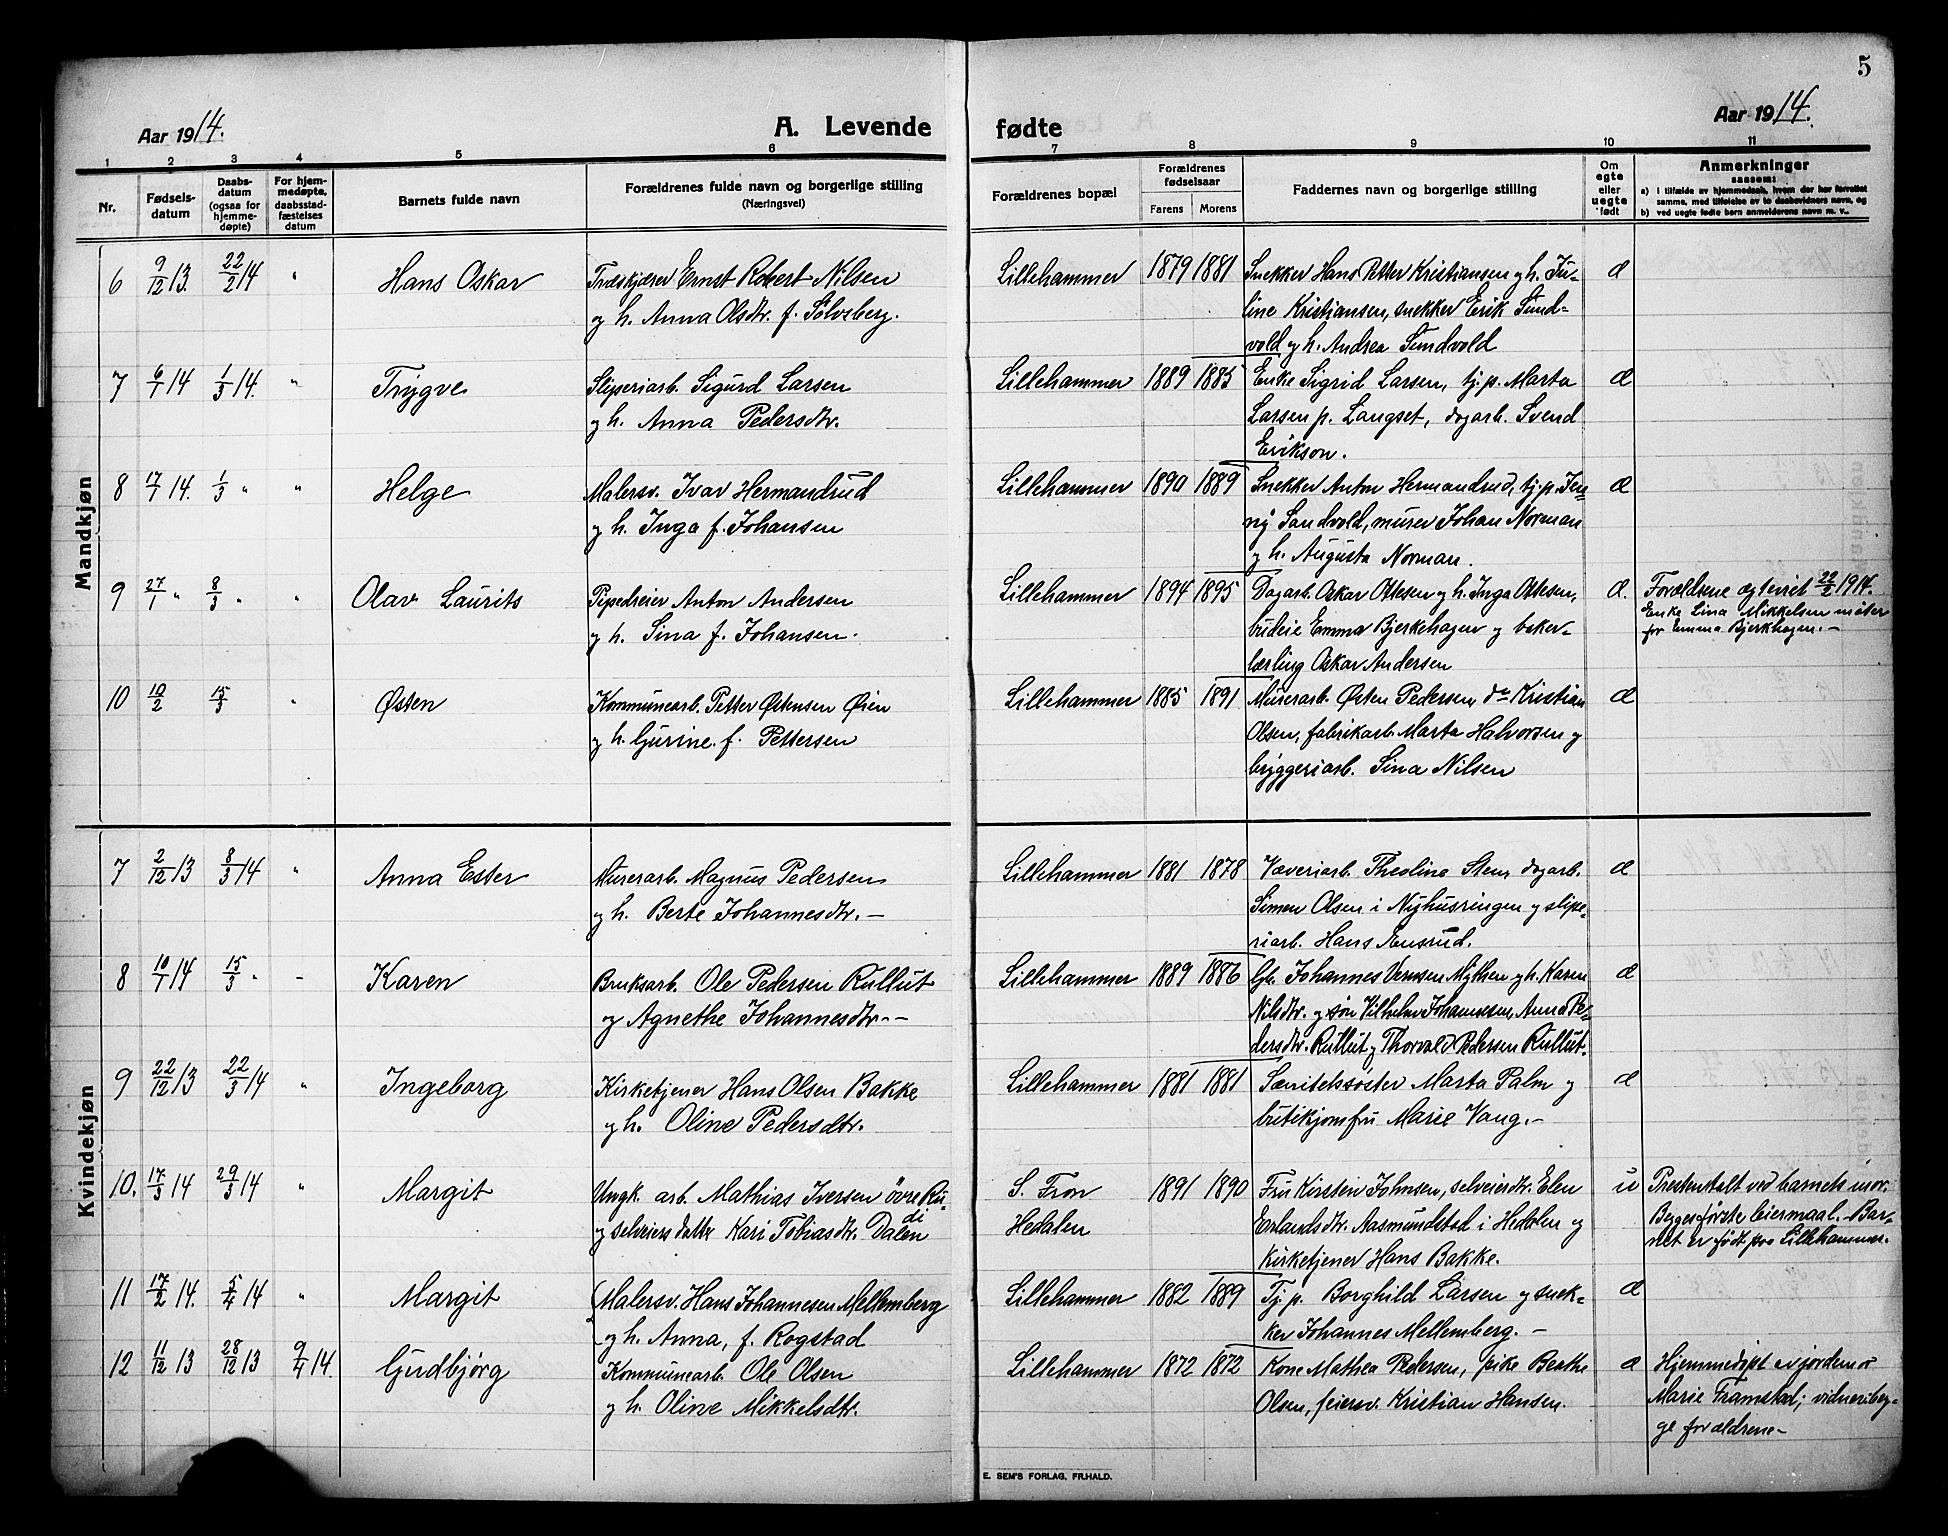 5
Aar 1914.
A. Levende
fødte
Aar 1914.
1 2 3 4 5 6 7 8 9 10 11
Nr.
Fødsels-
datum
Daabs-
datum
(ogsaa for
hjemme-
døpte)
For hjem-
medøpte,
daabsstad-
fæstelses
datum
Barnets fulde navn
Forældrenes fulde navn og borgerlige stilling
(Næringsvei)
Forældrenes bopæl
Forældrenes
fødselsaar
Farens Morens
Faddernes navn og borgerlige stilling
Om
egte
eller
uegte
født
Anmerkninger
saasom:
a) i tilfælde av hjemmedaab, hvem der har forrettet
samme, med tilføielse av to daabsvidners navn, og
b) ved uegte fødte børn anmelderens navn m. v.
Mandkjøn
6 9/12 13. 22/2 14 " Hans Oskar
Træskjærer Ernst Robert Nilsen
og h. Anna Olsdtr. f. Sølvsberg.
Lillehammer 1879 1881
Snekker Hans Petter Kristiansen og h. Ju-
line Kristiansen, snekker Erik Sund-
vold og h. Andrea Sundvold
æ
7 6/1 14 1/3 14. " Trygve
Sliperiarb. Sigurd Larsen
og h. Anna Pedersdtr.
Lillehammer 1889 1885
Enke Sigrid Larsen, tj.p. Marta
Larsen p. Langset, dagarb. Svend
Erikson.
æ
8 17/1 14. 1/3 " " Helge
Malersv. Ivar Hermandrud
og h. Inga f. Johansen
Lillehammer 1890 1889
Snekker Anton Hermandrud, tj.p. Jen-
ny Sandvold, murer Johan Norman
og h. Augusta Norman.
æ
9 27/1 " 8/3 " " Olav Laurits
Pipedreier Anton Andersen
og h. Sina f. Johansen.
Lillehammer 1894 1895
Dagarb. Oskar Ottesen og h. Inga Ottesen,
budeie Emma Bjerkehagen og baker-
lærling Oskar Andersen
æ.
Forældrene egteviet 22/2 1914.
Enke Lina Mikkelsen møter
for Emma Bjerkhagen. -
10 10/2 15/3 " Østen
Kommunearb. Petter Østensen Øien
og h. Gurine f. Pettersen
Lillehammer 1885 1891
Murerarb. Østen Pedersen, do Kristian
Olsen, fabrikarb. Marta Halvorsen og
bryggeriarb. Sina Nilsen
æ
Kvindekjøn
7 2/12 13 8/3 14 " Anna Ester
Murerarb. Magnus Pedersen
og h. Berte Johannesdtr. -
Lillehammer 1881 1878
Væveriarb. Theoline Sten, dagarb.
Simen Olsen i Nyhusringen og slipe-
riarb. Hans Ensrud.
æ
8 10/1 14 15/3 " - Karen
Bruksarb. Ole Pedersen Rullut
og Agnethe Johannesdtr. -
Lillehammer 1889 1886
Gbr. Johannes Mythen og h. Karen
Nilsdtr. og søn Vilhelm Johannesen, Anna Pe-
dersdtr. Rullut og Thorvald Pedersen Rullut.
æ
9 22/12 13 22/3 14 " Ingeborg
Kirketjener Hans Olsen Bakke
og h. Oline Pedersdtr.
Lillehammer 1881 1881
Særritelssøster Marta Palm og
butikjomfru Marie Vang. -
æ
10. 17/3 14 29/3 14 " Margit
Ungk. arb. Mathias Iversen øvre Ru-
di
og selveiers datter Kari Tobiasdtr. Dalen
S. Fron
Hedalen
1891 1890
Fru Kirsten Johnsen, selveierdtr. Elen
Erlandsdtr. Aasmundstad i Hedalen og
kirketjener Hans Bakke.
u
Presten kaldt ved barnets mor.
Begges første leiermaal. Bar-
net er født paa Lillehammer.
11 17/2 14. 5/4 14 " Margit
Malersv. Hans Johannesen Mellemberg
og h. Anna, f. Rogstad
Lillehammer 1882 1889
Tj. p. Borghild Larsen og snek-
ker Johannes Mellemberg. -
æ
12 11/12 13 28/12 13 9/4 14. Gudbjørg
Kommunearb. Ole Olsen
og h. Oline Mikkelsdtr.
Lillehammer 1872 1872
Kone Mathea Pedersen, pike Berthe
Olsen, feiersv. Kristian Hansen.
æ
Hjemmedøpt av jordemor
Marie Framstad; vidner: beg-
ge forældrene -
E. SEM'S FORLAG, FR.HALD.